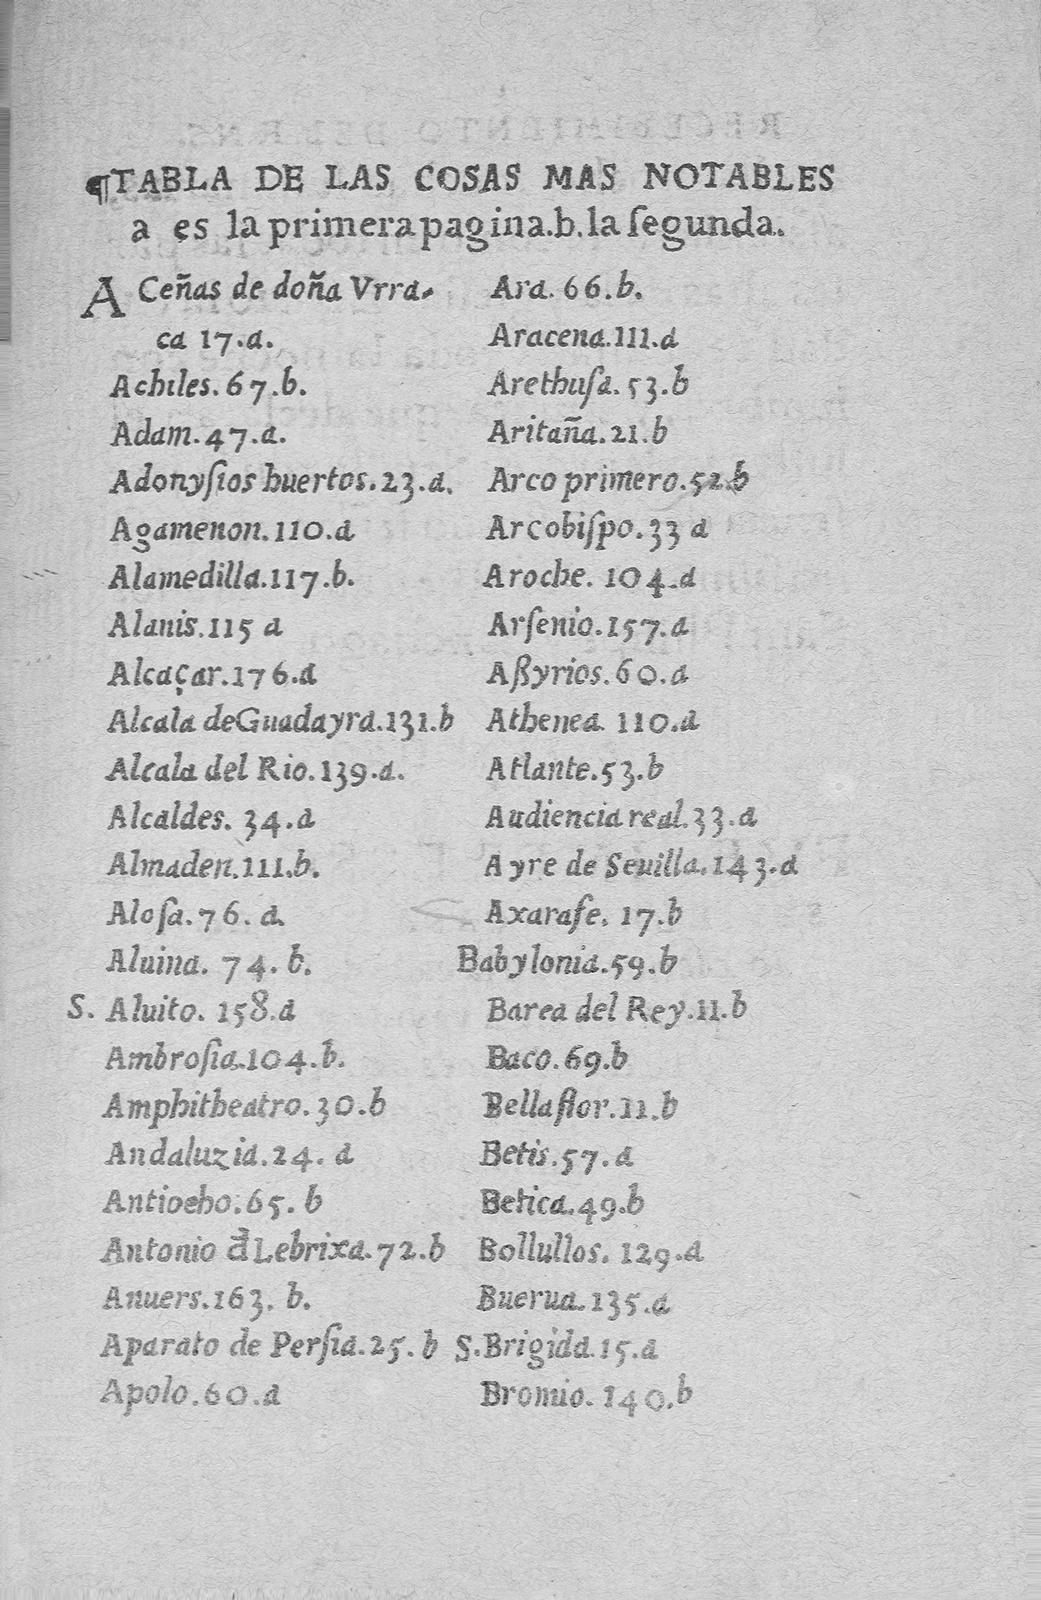 ¶TABLA DE LAS COSAS MAS NOTABLES
a es la primera pagina.b.la ſegunda.
A Ceñas de doña Vrra-
ca 17.a.
Achiles.67.b.
Adam.47.a.
Adonyſios huertos.23.a.
Agamenon.110.a
Alamedilla.117.b.
Alanis.115 a
Alcaçar.176.a
Alcala de Guadayra.131.b
Alcala del Rio.139.a.
Alcaldes. 34.a
Almaden.111.b.
Aloſa.76. a.
Aluina. 74. b.
S. Aluito. 158.a
Ambroſia.104.b.
Amphitheatro.30.b
Andaluzia.24. a
Antiocho.65. b
Antonio đ Lebrixa.72.b
Anuers.163. b.
Aparato de Perſia.25.b
Apolo.60.a
Ara. 66.b.
Aracena.111.a
Arethuſa.53.b
Aritaña.21.b
Arco primero.52.b
Arcobiſpo.33 a
Aroche. 104.a
Arſenio.157.a
Aßyrios.60.a
Athenea. 110.a
Atlante.53.b
Audiencia real.33.a
Ayre de Seuilla.143.a
Axarafe. 17.b
Babylonia.59.b
Barea del Rey.11.b
Baco.69.b
Bellaflor.11.b
Betis.57.a
Betica.49.b
Bollullos. 129.a
Buerua.135.a
S.Brigida.15.a
Bromio. 140.b